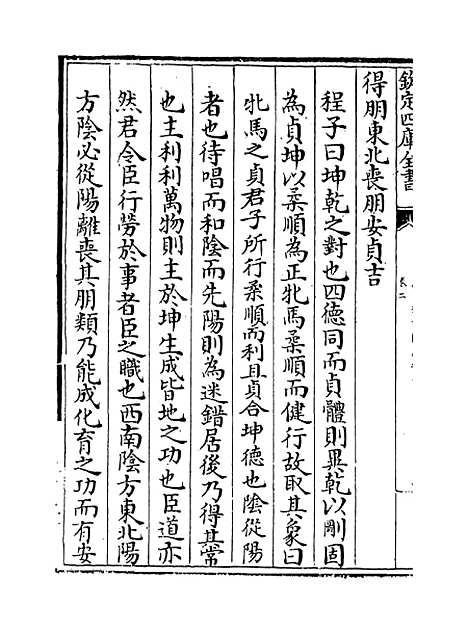 欽定四庫全書
卷二
得朋東北喪朋安貞吉
程子曰坤乾之對也四德同而貞體則異乾以剛固
為貞坤以柔順為正牝馬柔順而健行故取其象曰
牝馬之貞君子所行柔順而利且貞合坤德也陰從陽
者也待唱而和陰而先陽則為迷錯居後乃得其常
也主利利萬物則主於坤生成皆地之功也臣道亦
然君令臣行勞於事者臣之職也西南陰方東北陽
方陰必從陽離喪其朋類乃能成化育之功而有安